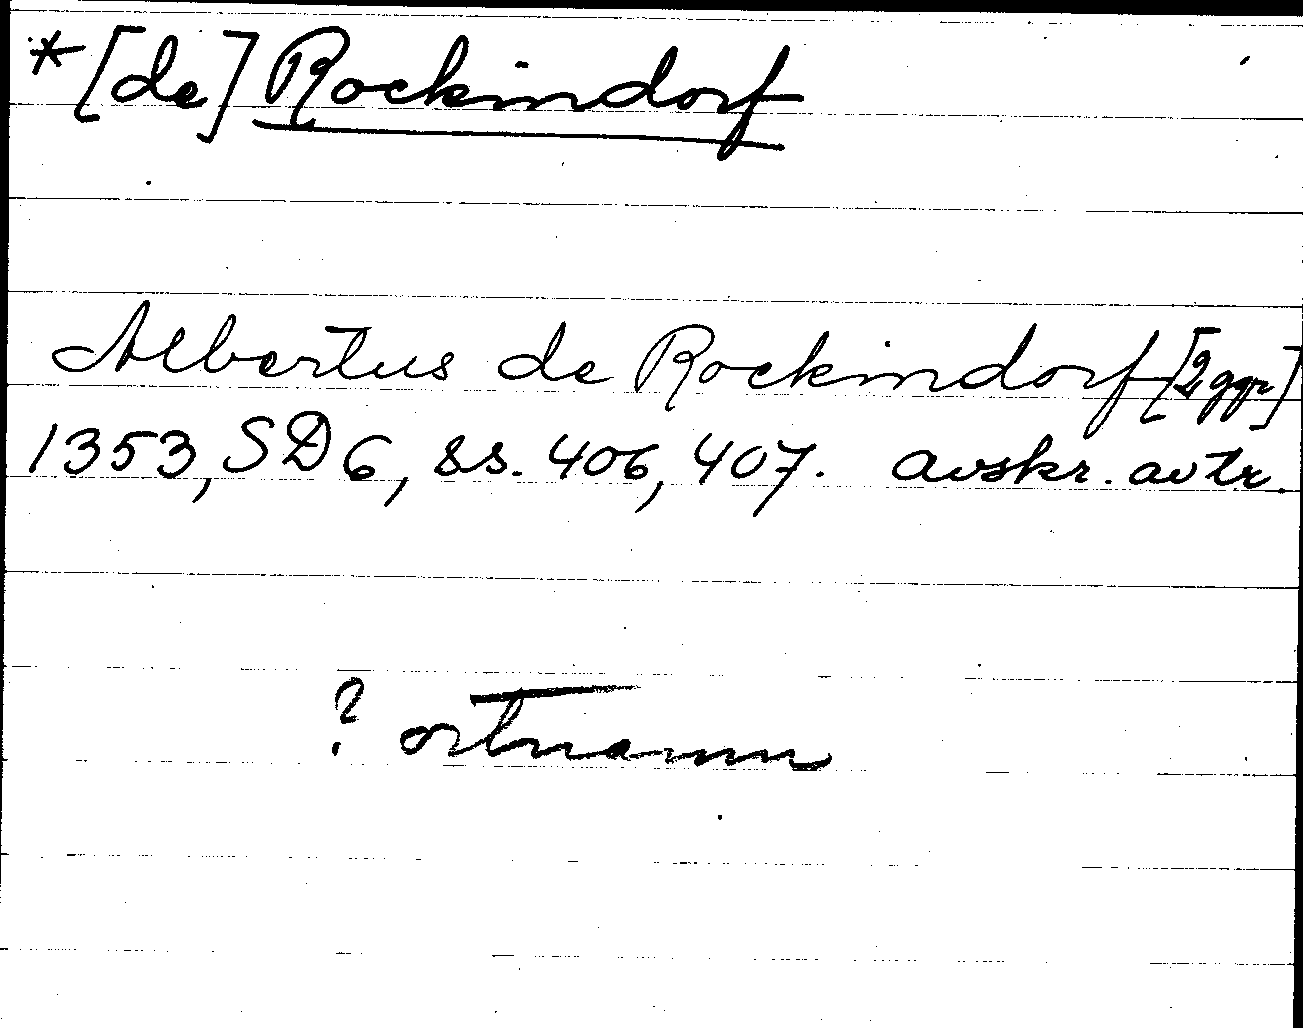 *[de] Rockindorf
Albertus de Rockindorf [2 ggr]
1353, SD 6, ss. 406, 407. avskr. av tr.
? ortnamn